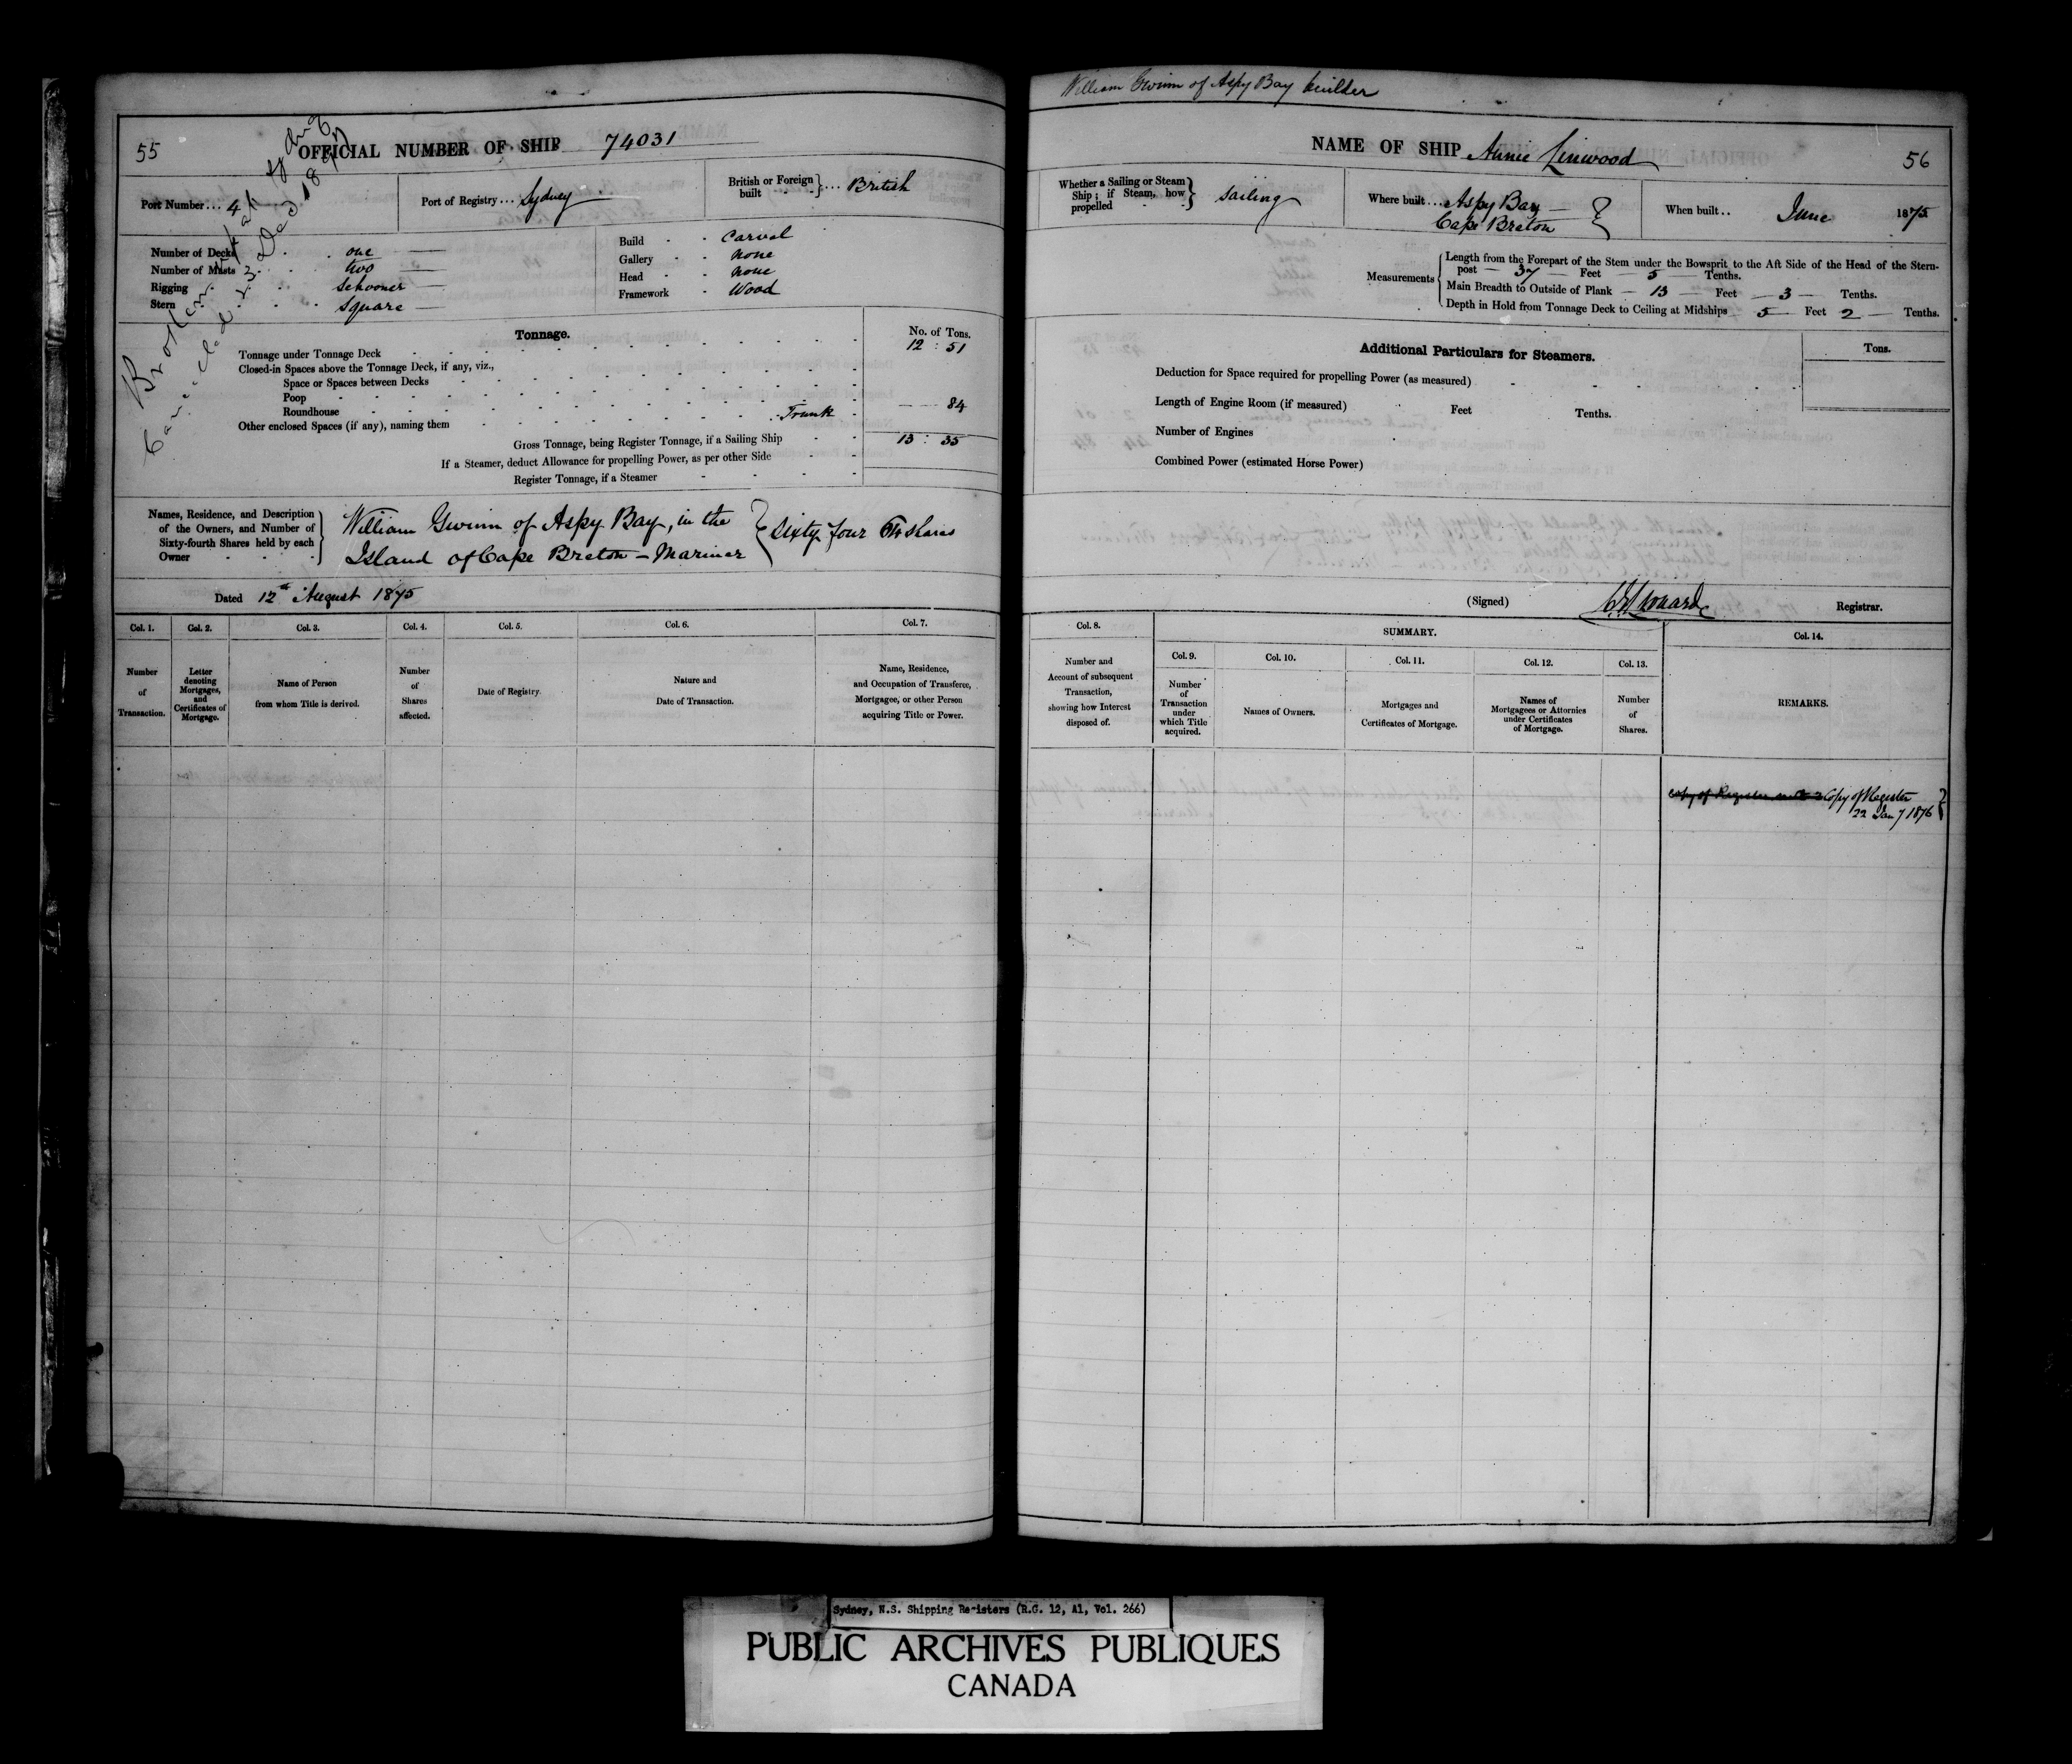 55
OFFICIAL NUMBER OF SHIP 74031
Port Number... 4
Port of Registry... Sydney
British or Foreign built } ... British
Number of Decks one
Number of Masts two
Rigging Schooner
Stern Square
Build Carvel
Gallery none
Head none
Framework Wood
Broken up
Cancelled 23 Dec 18
Tonnage.
No. of Tons.
Tonnage under Tonnage Deck 12 : 51
Closed-in Spaces above the Tonnage Deck, if any, viz.,
Space or Spaces between Decks
Poop
Roundhouse
Other enclosed Spaces (if any), naming them Trunk 84
Gross Tonnage, being Register Tonnage, if a Sailing Ship 13 : 35
If a Steamer, deduct Allowance for propelling Power, as per other Side
Register Tonnage, if a Steamer
Names, Residence, and Description of the Owners, and Number of Sixty-fourth Shares held by each Owner
William Gwinn of Aspy Bay, in the
Island of Cape Breton – Mariner } Sixty four 64 shares
Dated 12th August 1875
Col. 1. Col. 2. Col. 3. Col. 4. Col. 5. Col. 6. Col. 7.
Number of Transaction.
Letter denoting Mortgages, and Certificates of Mortgage.
Name of Person from whom Title is derived.
Number of Shares affected.
Date of Registry.
Nature and Date of Transaction.
Name, Residence, and Occupation of Transferee, Mortgagee, or other Person acquiring Title or Power.
William Gwinn of Aspy Bay builder
NAME OF SHIP Annie Linwood
56
Whether a Sailing or Steam Ship; if Steam, how propelled } Sailing
Where built... Aspy Bay
Cape Breton
When built.. June 1875
Measurements
Length from the Forepart of the Stem under the Bowsprit to the Aft Side of the Head of the Stern-
post 37 Feet 5 Tenths.
Main Breadth to Outside of Plank 13 Feet 3 Tenths.
Depth in Hold from Tonnage Deck to Ceiling at Midships 5 Feet 2 Tenths.
Additional Particulars for Steamers.
Tons.
Deduction for Space required for propelling Power (as measured)
Length of Engine Room (if measured) Feet Tenths.
Number of Engines
Combined Power (estimated Horse Power)
(Signed) Registrar.
Col. 8. SUMMARY. Col. 14.
Col. 9. Col. 10. Col. 11. Col. 12. Col. 13.
Number and Account of subsequent Transaction, showing how Interest disposed of.
Number of Transaction under which Title acquired.
Names of Owners.
Mortgages and Certificates of Mortgage.
Names of Mortgagees or Attornies under Certificates of Mortgage.
Number of Shares.
REMARKS.
Copy of Register
22 Jany 1876
Sydney, N.S. Shipping Registers (R.G. 12, A1, Vol. 266)
PUBLIC ARCHIVES PUBLIQUES
CANADA